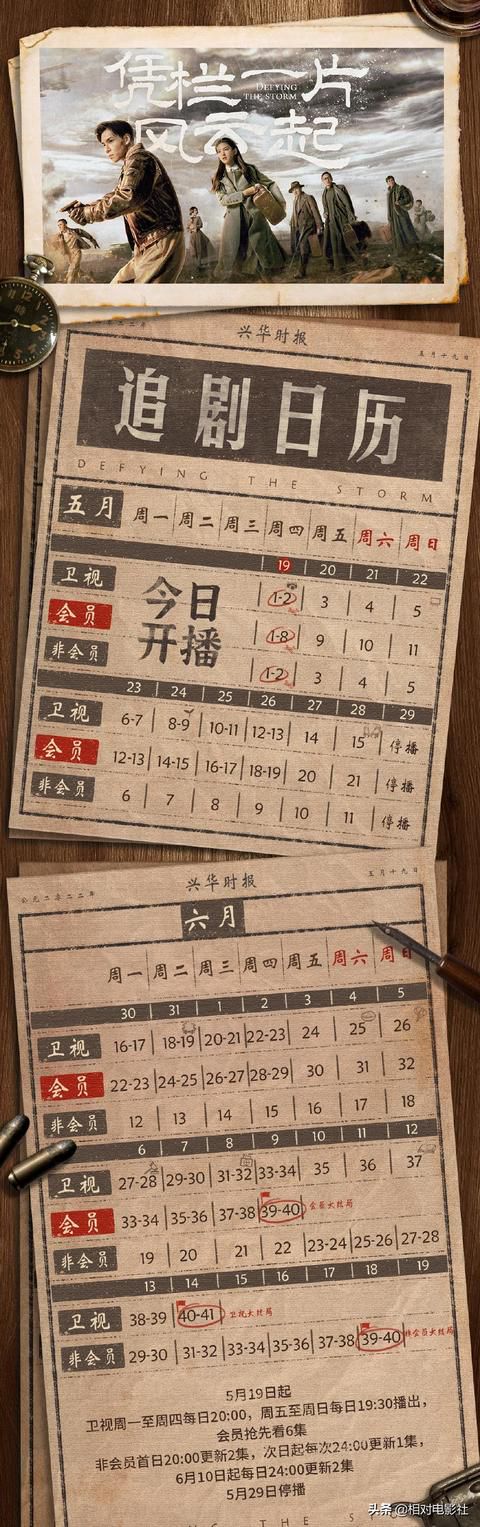 凭栏一片
DEFYING
THE STORM
风云起
兴华时报
五月十九日
追剧日历
DEFYING THE STORM
五月 周一 周二 周三 周四 周五 周六 周日
19 20 21 22
卫视 1-2 3 4 5
会员 1-8 9 10 11
非会员 1-2 3 4 5
今日
开播
23 24 25 26 27 28 29
卫视 6-7 8-9 10-11 12-13 14 15 停播
会员 12-13 14-15 16-17 18-19 20 21 停播
非会员 6 7 8 9 10 11 停播
公元二零二二年 兴华时报 五月十九日
六月
周一 周二 周三 周四 周五 周六 周日
30 31 1 2 3 4 5
卫视 16-17 18-19 20-21 22-23 24 25 26
会员 22-23 24-25 26-27 28-29 30 31 32
非会员 12 13 14 15 16 17 18
6 7 8 9 10 11 12
卫视 27-28 29-30 31-32 33-34 35 36 37
会员 33-34 35-36 37-38 39-40 会员大结局
非会员 19 20 21 22 23-24 25-26 27-28
13 14 15 16 17 18 19
卫视 38-39 40-41 卫视大结局
非会员 29-30 31-32 33-34 35-36 37-38 39-40 非会员大结局
5月19日起
卫视周一至周四每日20:00，周五至周日每日19:30播出，
会员抢先看6集
非会员首日20:00更新2集，次日起每次24:00更新1集，
6月10日起每日24:00更新2集
5月29日停播
头条 @相对电影社